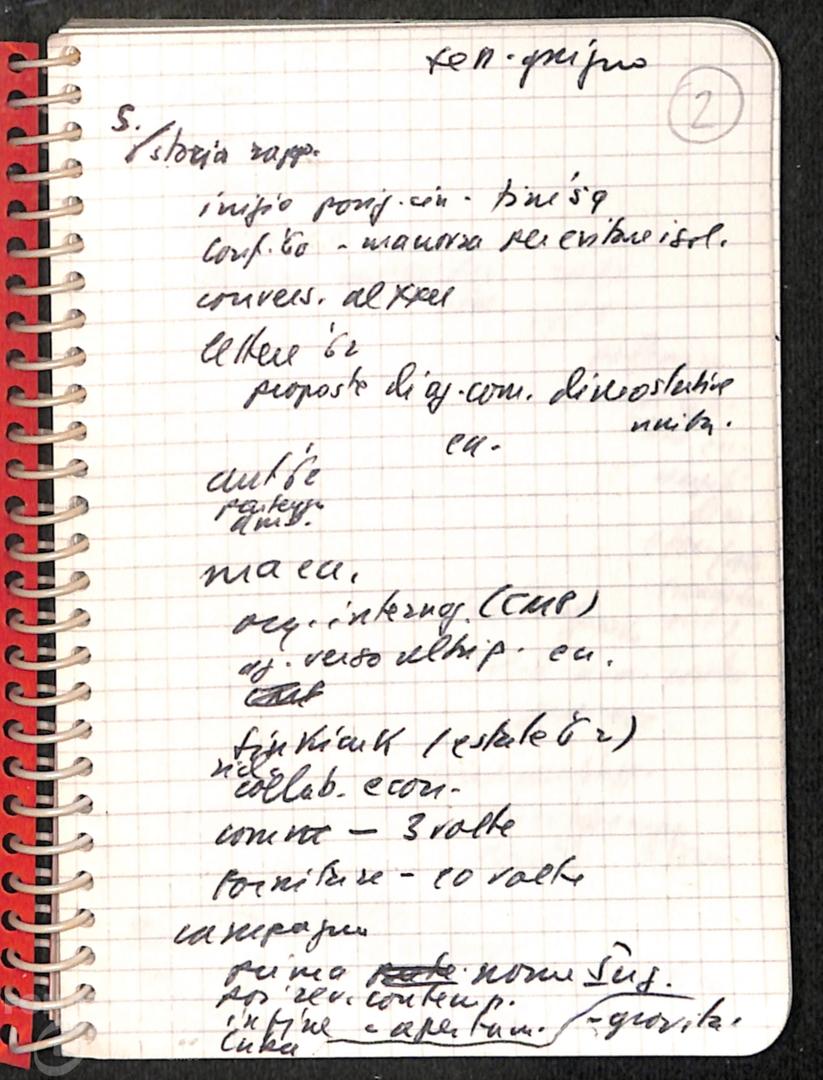 2
S.
storia rapp.
inizio poniz. cin. - fine '59
conf. '60 - manovra per evitare isol.
convers. al XXII
lettere '62
proposte di az. com. dimostrative
unita.
cu.
ma cu.
org. internaz. (CMP)
az. verso altri p. cu.
(estate '62)
collab. econ.
comm - 3 volte
forniture - 20 volte
campagna
prima nome Iug.
poi rev. contemp.
infine - apertam. - gravità.
Cuba